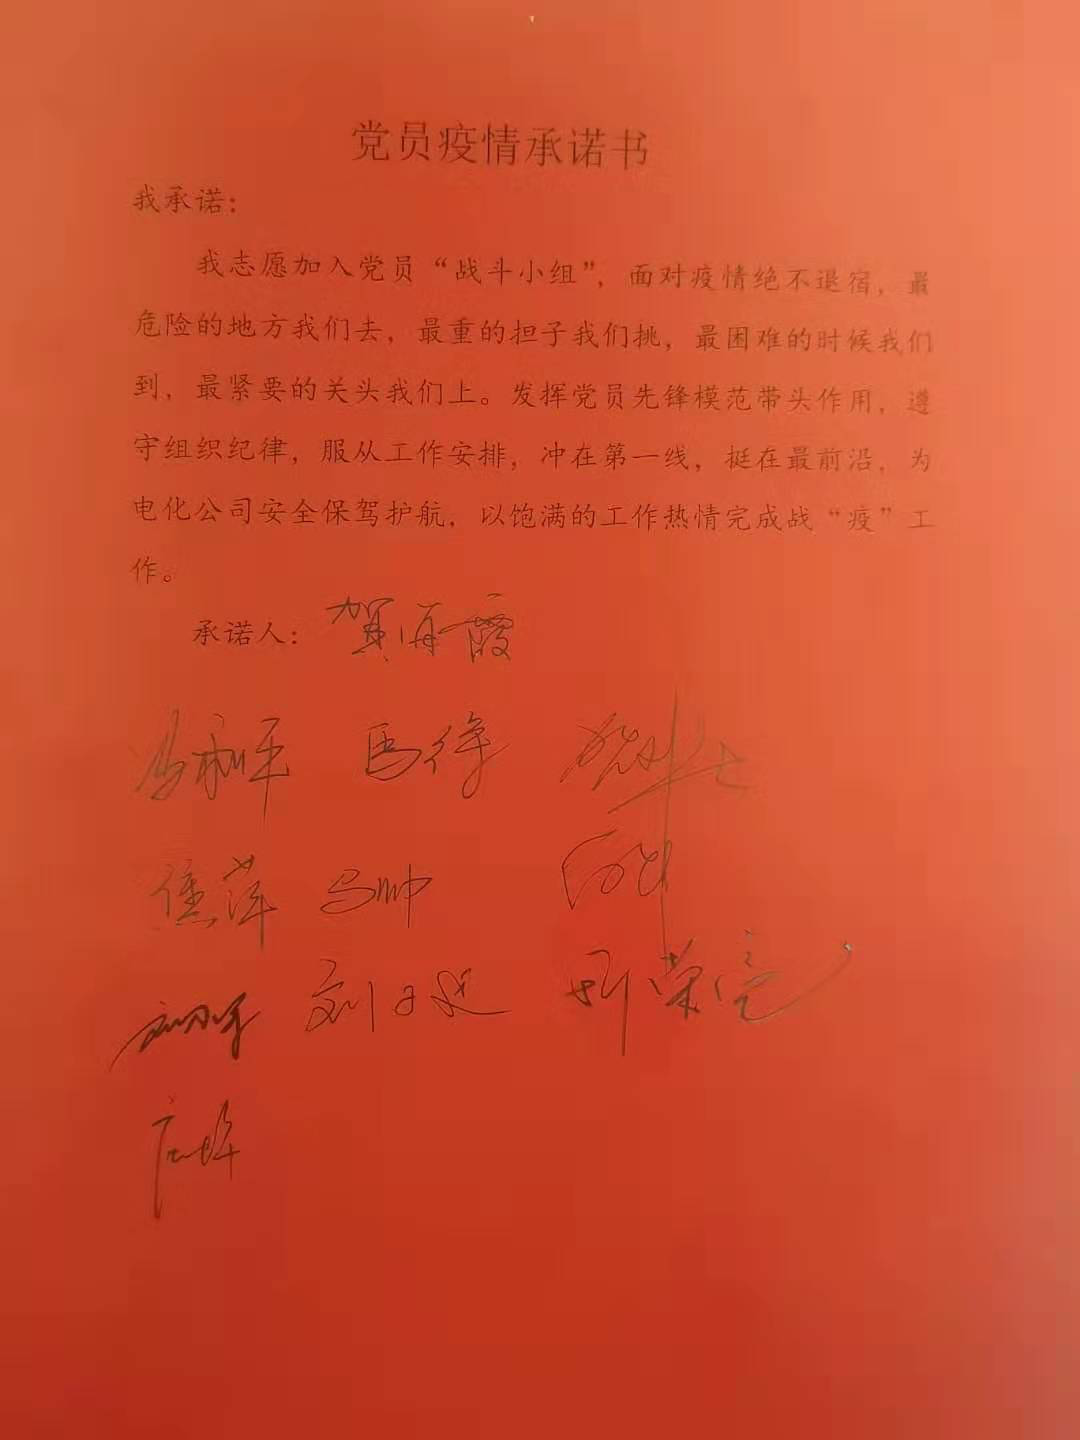 党员疫情承诺书
我承诺：
我志愿加入党员“战斗小组”，面对疫情绝不退宿，最
危险的地方我们去，最重的担子我们挑，最困难的时候我们
到，最紧要的关头我们上。发挥党员先锋模范带头作用，遵
守组织纪律，服从工作安排，冲在第一线，挺在最前沿，为
电化公司安全保驾护航，以饱满的工作热情完成战“疫”工
作。
承诺人：贺海霞
焦萍 马帅